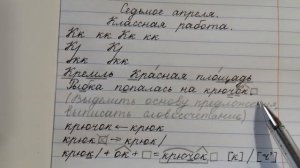 Седьмое апреля.
Классная работа.
Кк кк Кк кк
Кр Кр
Якк Якк
Кремль Красная площадь
Рыбка попалась на крючок
(Выделить основу предложения,
выписать словосочетание)
крючок ← крюк
крючок → крюк/
крюк/ + ок + = крючок [к] / [ч']